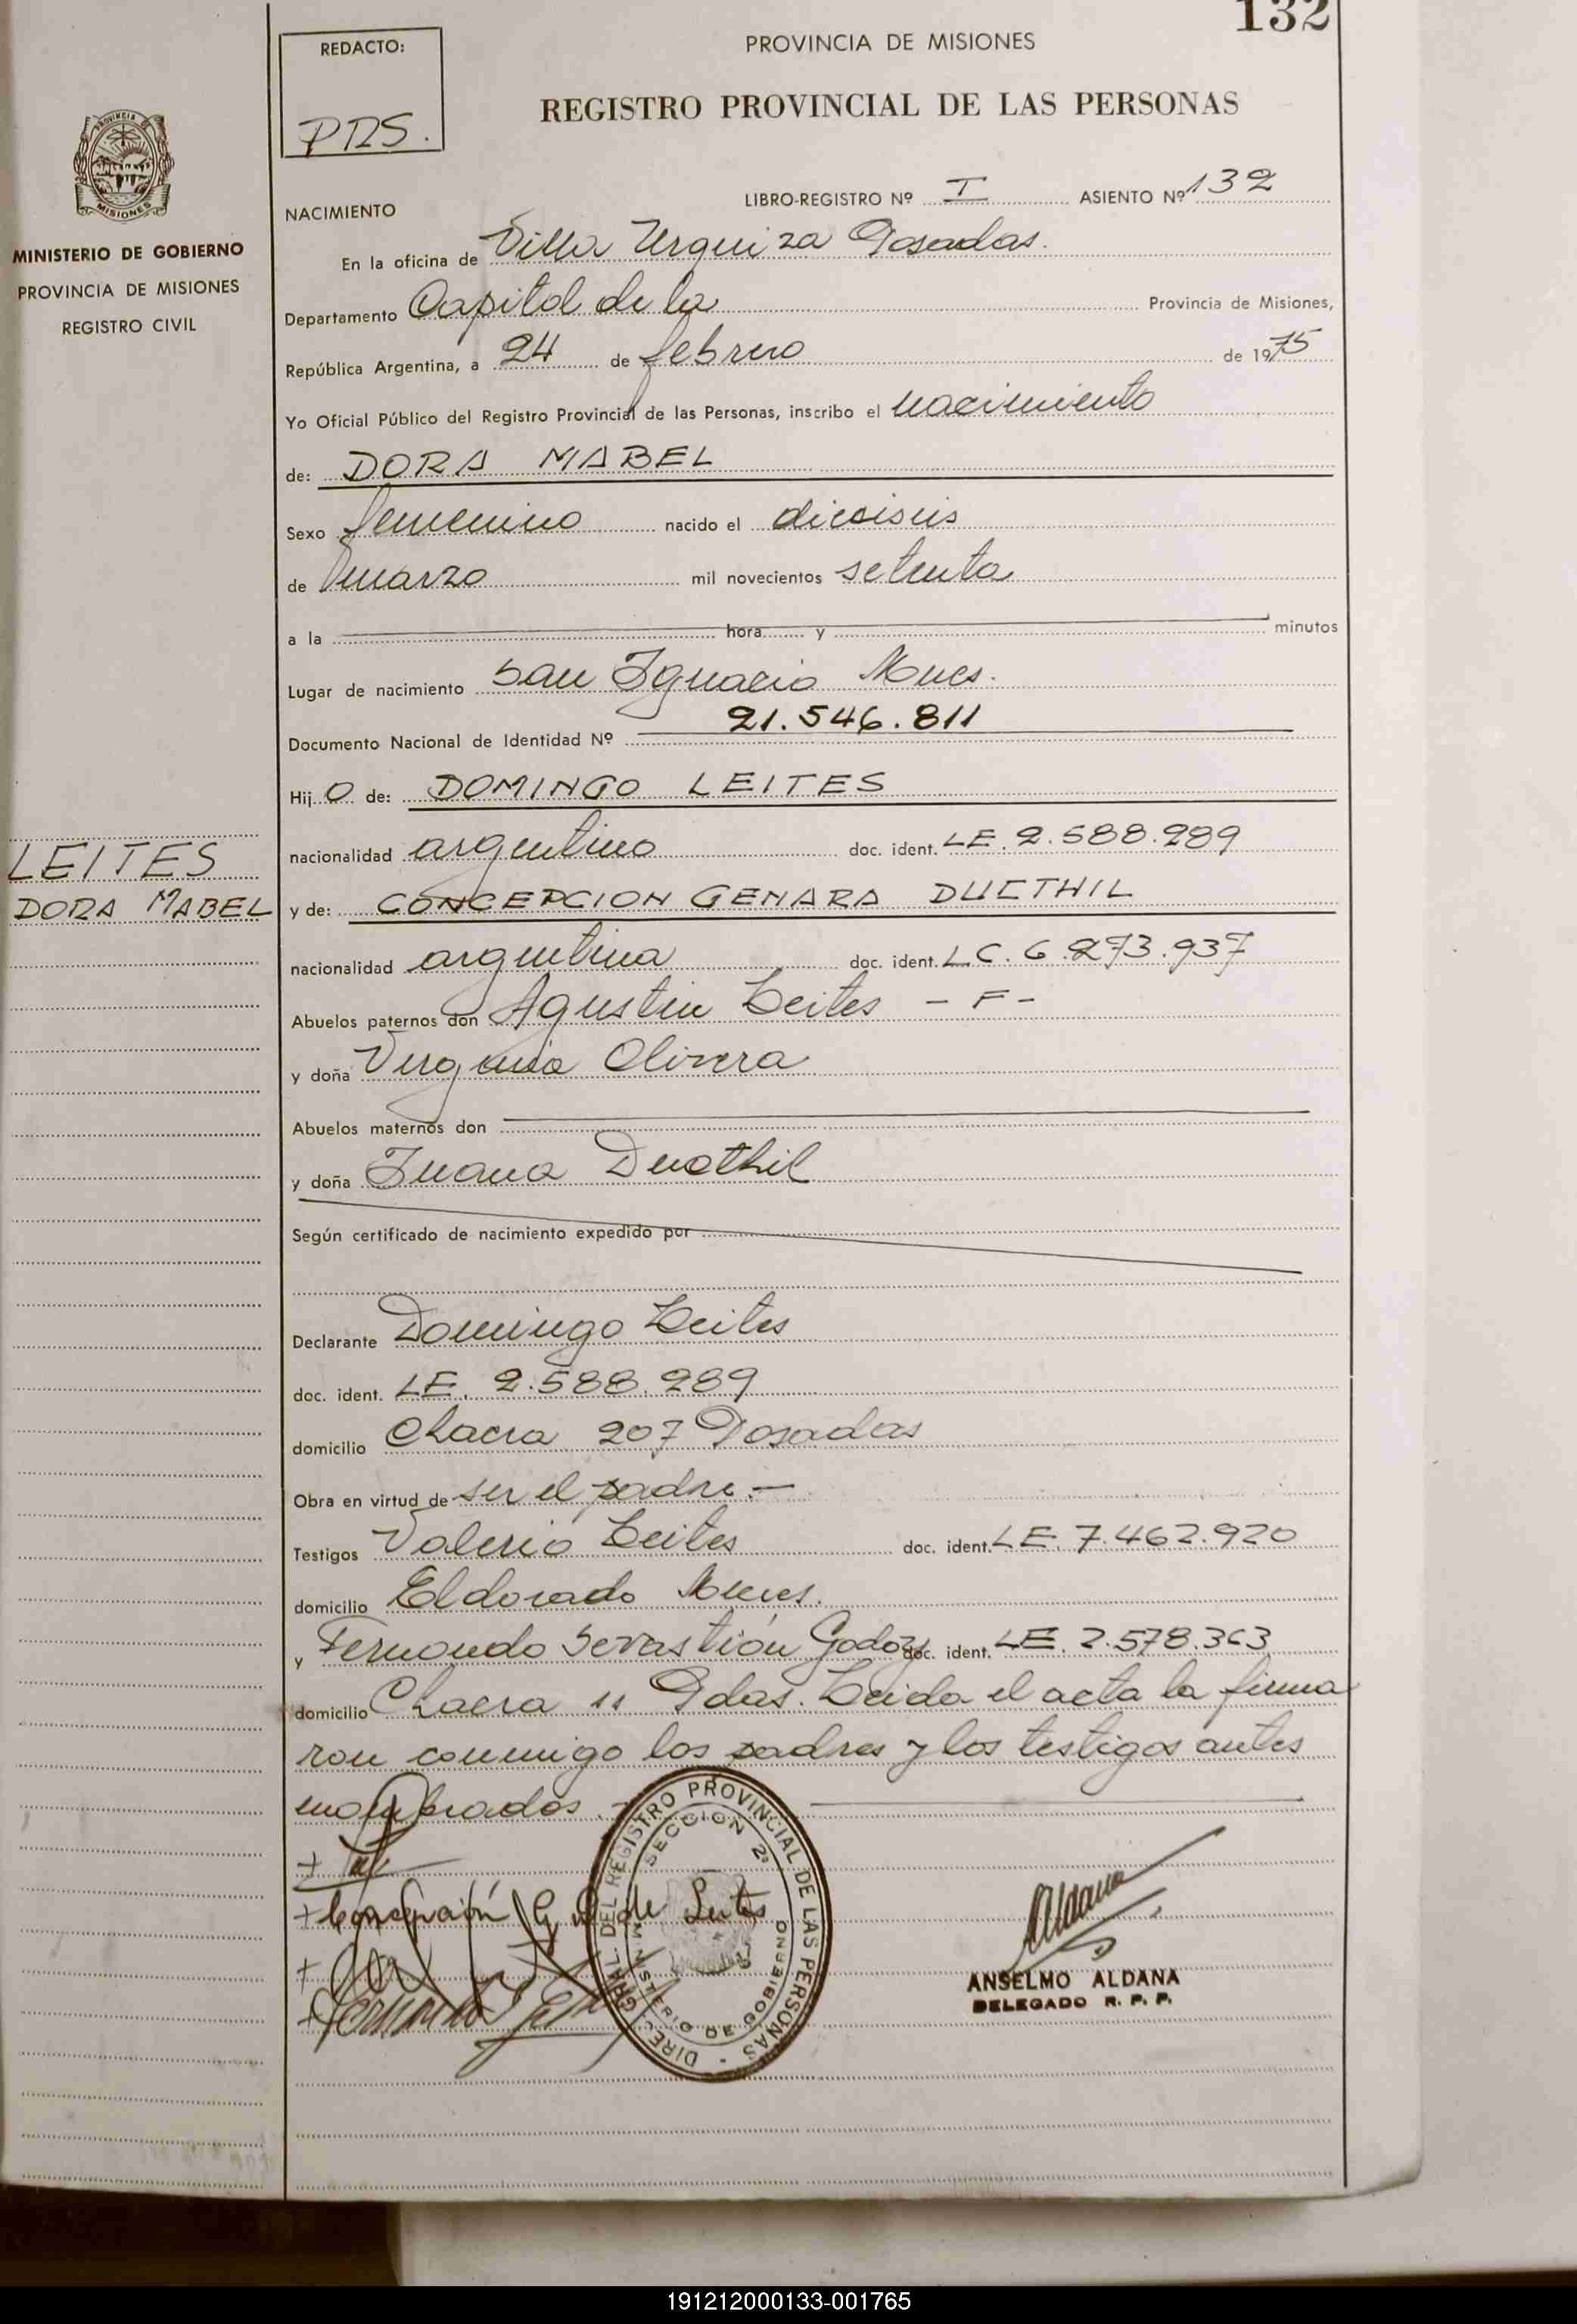 132
REDACTO:
PROVINCIA DE MISIONES
REGISTRO PROVINCIAL DE LAS PERSONAS
PROVINCIA DE
MISIONES
MINISTERIO DE GOBIERNO
PROVINCIA DE MISIONES
REGISTRO CIVIL
LIBRO-REGISTRO Nº I ASIENTO Nº 132
NACIMIENTO
En la oficina de Villa Urquiza Posadas.
Departamento Capital de la Provincia de Misiones,
República Argentina, a 24 de febrero de 1975
Yo Oficial Público del Registro Provincial de las Personas, inscribo el nacimiento
de: DORA MABEL
Sexo femenino nacido el diesiseis
de marzo mil novecientos setenta
a la hora y minutos
Lugar de nacimiento San Ignacio Mnes.
Documento Nacional de Identidad Nº 21.546.811
Hijo de: DOMINGO LEITES
nacionalidad argentino doc. ident. LE. 2.588.289
LEITES
DORA MABEL
y de: CONCEPCION GENARA DUCTHIL
nacionalidad argentina doc. ident. L.C. 6.273.937
Abuelos paternos don Agustin Leites - F -
y doña Virginia Olivera
Abuelos maternos don
y doña Juana Ducthil
Según certificado de nacimiento expedido por
Declarante Domingo Leites
doc. ident. LE. 2.588.289
domicilio Chacra 207 Posadas
Obra en virtud de ser el padre.-
Testigos Valerio Leites doc. ident. LE. 7.462.920
domicilio Eldorado Mnes.
y Fernando Sevastión Godoy doc. ident. LE. 2.578.363
domicilio Chacra 11 Pdas. Leida el acta la firma
ron conmigo los padres y los testigos antes
mombrados.-
+
+ Concepción G. D. de Leites
+
+ Fernando
DIREC. GRAL. DEL REGISTRO PROVINCIAL DE LAS PERSONAS
SECCION 2ª
MINISTERIO DE GOBIERNO
Aldana
ANSELMO ALDANA
DELEGADO R. P. P.
191212000133-001765